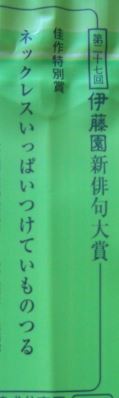 第二十七回
伊藤園新俳句大賞
佳作特別賞
ネックレスいっぱいつけていものつる